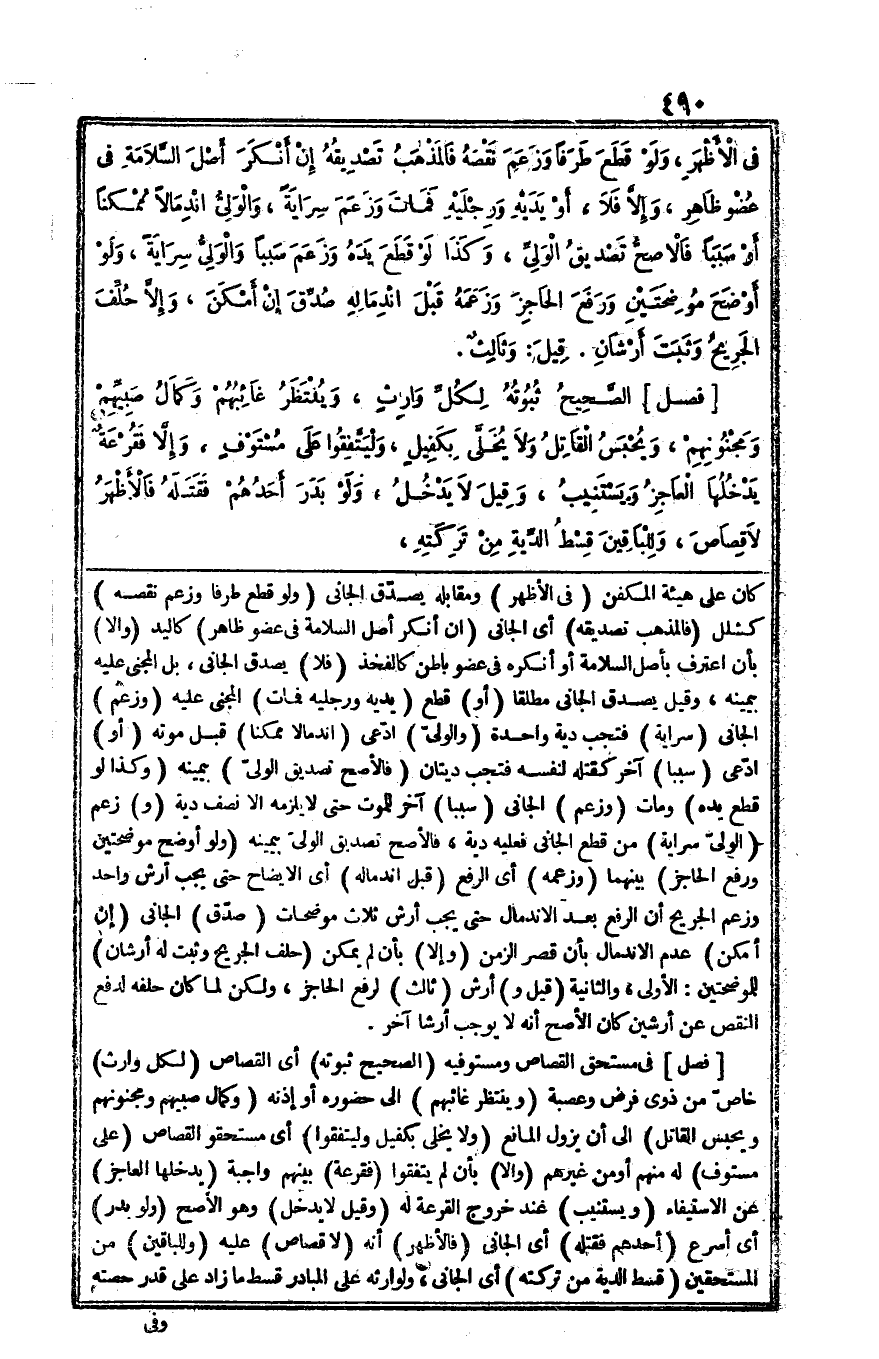 ٤٩٠
فى الْأَظْهَرِ ، وَلَوْ قَطَعَ طَرَفًا وَزَعَمَ نَقْصَهُ فَالْمَذْهَبُ تَصْدِيقُهُ إِنْ أَنْكَرَ أَصْلَ السَّلَامَةِ فى
عُضْوٍ ظَاهِرٍ ، وَإِلَّا فَلَا ، أَوْ يَدَيْهِ وَرِجْلَيْهِ فَمَاتَ وَزَعَمَ سِرَايَةً ، وَالْوَلِىُّ انْدِمَالًا مُمْكِنًا
أَوْ سَبَبًا فَالْأَصَحُّ تَصْدِيقُ الْوَلِىِّ ، وَكَذَا لَوْ قَطَعَ يَدَهُ وَزَعَمَ سَبَبًا وَالْوَلِىُّ سِرَايَةً ، وَلَوْ
أَوْضَحَ مُوضِحَتَيْنِ وَرَفَعَ الْحَاجِزَ وَزَعَمَهُ قَبْلَ انْدِمَالِهِ صُدِّقَ إِنْ أَمْكَنَ ، وَإِلَّا حُلِّفَ
الْجَرِيحُ وَثَبَتَ أَرْشَانِ . قِيلَ : وَثَالِثٌ .
[ فصل ] الصَّحِيحُ ثُبُوتُهُ لِكُلِّ وَارِثٍ ، وَيُنْتَظَرُ غَائِبُهُمْ وَكَمَالُ صَبِيِّهِمْ
وَمَجْنُونِهِمْ ، وَيُحْبَسُ الْقَاتِلُ وَلَا يُخَلَّى بِكَفِيلٍ ، وَلْيَتَّفِقُوا عَلَى مُسْتَوْفٍ ، وَإِلَّا فَقُرْعَةٌ
يَدْخُلُهَا الْعَاجِزُ وَيَسْتَنِيبُ ، وَقِيلَ لَا يَدْخُلُ ، وَلَوْ بَدَرَ أَحَدُهُمْ فَقَتَلَهُ فَالْأَظْهَرُ
لَاقِصَاصَ ، وَلِلْبَاقِينَ قِسْطُ الدِّيَةِ مِنْ تَرِكَتِهِ ،
كان على هيئة المكفن ( فى الأظهر ) ومقابله يصدّق الجانى ( ولو قطع طرفا وزعم نقصه )
كشلل (فالمذهب تصديقه) أى الجانى (ان أنكر أصل السلامة فى عضو ظاهر) كاليد (والا)
بأن اعترف بأصل السلامة أو أنكره فى عضو باطن كالفخذ (فلا) يصدق الجانى ، بل المجنى عليه
بيمينه ، وقيل يصدق الجانى مطلقا (أو) قطع ( يديه ورجليه فمات) المجنى عليه (وزعم )
الجانى (سراية) فتجب دية واحدة (والولىّ ) ادّعى (اندمالا ممكنا) قبل موته (أو )
ادّعى (سببا) آخر كقتله لنفسه فتجب ديتان ( فالأصح تصديق الولىّ ) بيمينه ( وكذا لو
قطع يده) ومات (وزعم ) الجانى (سببا) آخر للموت حتى لا يلزمه الا نصف دية (و) زعم
(الولىّ سراية) من قطع الجانى فعليه دية ، فالأصح تصديق الولىّ بيمينه (ولو أوضح موضحتين
ورفع الحاجز) بينهما (وزعمه) أى الرفع (قبل اندماله) أى الايضاح حتى يجب أرش واحد
وزعم الجريح أن الرفع بعد الاندمال حتى يجب أرش ثلاث موضحات ( صدّق) الجانى (إن
أمكن) عدم الاندمال بأن قصر الزمن (وإلا) بأن لم يمكن (حلف الجريح وثبت له أرشان)
للموضحتين : الأولى ، والثانية (قيل و) أرش (ثالث) لرفع الحاجز ، ولكن لما كان حلفه لدفع
النقص عن أرشين كان الأصح أنه لا يوجب أرشا آخر .
[ فصل ] فى مستحق القصاص ومستوفيه (الصحيح ثبوته) أى القصاص (لكل وارث)
خاصّ من ذوى فرض وعصبة (وينتظر غائبهم ) الى حضوره أو إذنه ( وكمال صبيهم ومجنونهم
ويحبس القاتل) الى أن يزول المانع (ولا يخلى بكفيل وليتفقوا) أى مستحقو القصاص (على
مستوف) له منهم أومن غيرهم (والا) بأن لم يتفقوا (فقرعة) بينهم واجبة (يدخلها العاجز)
عن الاستيفاء (ويستنيب) عند خروج القرعة له (وقيل لايدخل) وهو الأصح (ولو بدر)
أى أسرع (أحدهم فقتله) أى الجانى (فالأظهر) أنه (لا قصاص) عليه (وللباقين) من
المستحقين ( قسط الدية من تركته ) أى الجانى ، ولوارثه على المبادر قسط ما زاد على قدر حصته
وفى